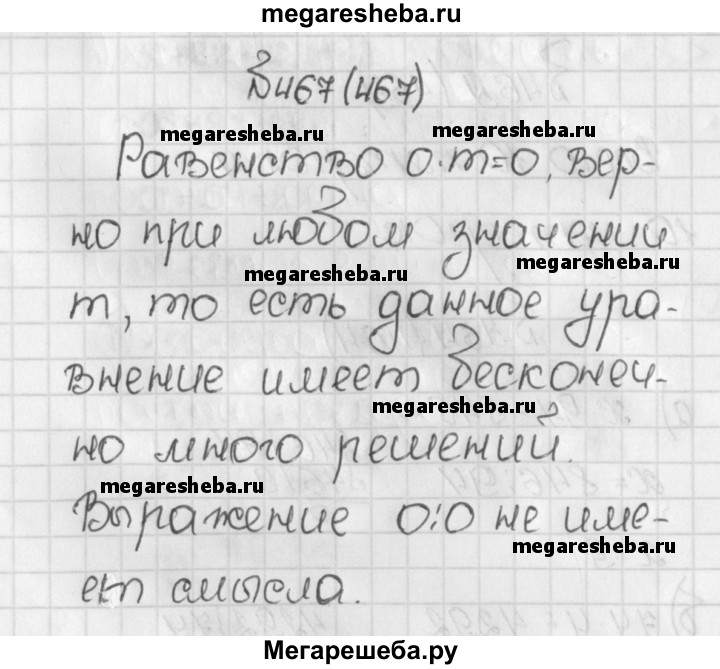 megaresheba.ru
№467 (467)
megaresheba.ru megaresheba.ru
Равенство 0·m=0, вер-
но при любом значении
megaresheba.ru megaresheba.ru
m, то есть данное ура-
внение имеет бесконеч-
megaresheba.ru
но много решений.
megaresheba.ru
Выражение 0:0 не име-
megaresheba.ru
ет смысла.
Мегарешеба.ру